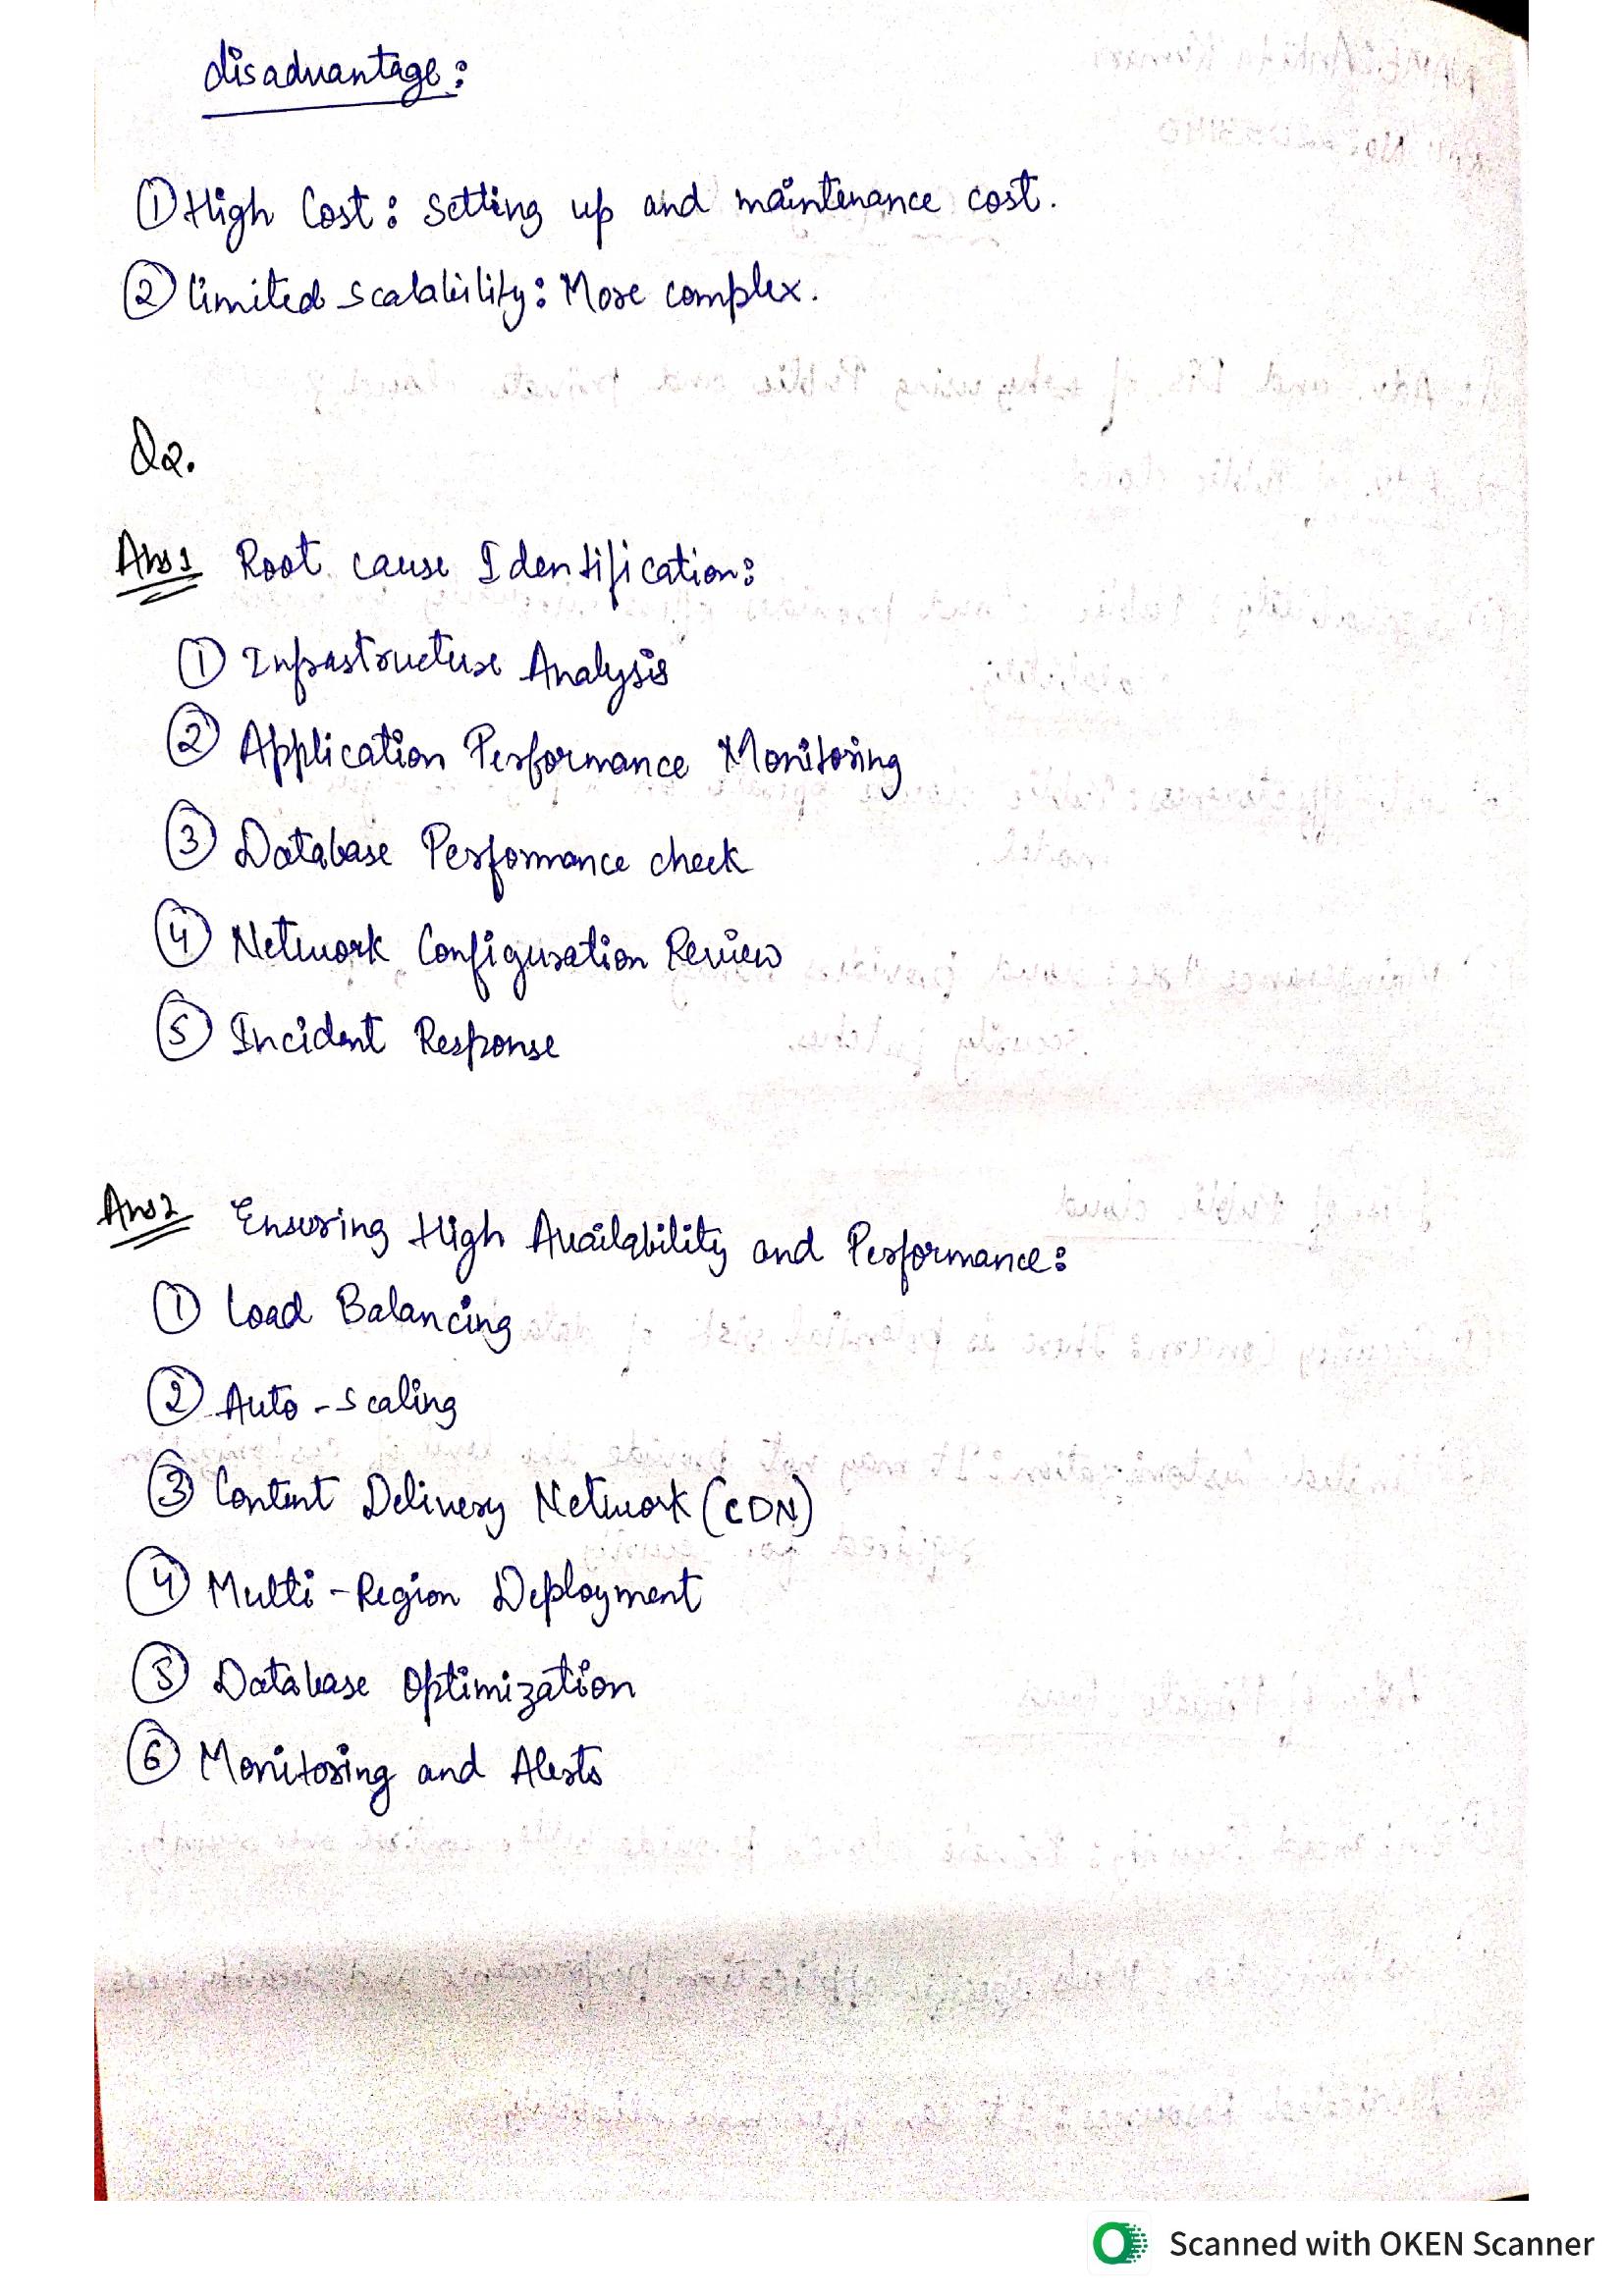 disadvantage:
① High Cost: Setting up and maintenance cost.
② limited scalability: More complex.
Q2.
Ans1 Root cause Identification:
① Infrastructure Analysis
② Application Performance Monitoring
③ Database Performance check
④ Network Configuration Review
⑤ Incident Response
Ans2 Ensuring High Availability and Performance:
① Load Balancing
② Auto-scaling
③ Content Delivery Network (CDN)
④ Multi-Region Deployment
⑤ Database Optimization
⑥ Monitoring and Alerts
Scanned with OKEN Scanner